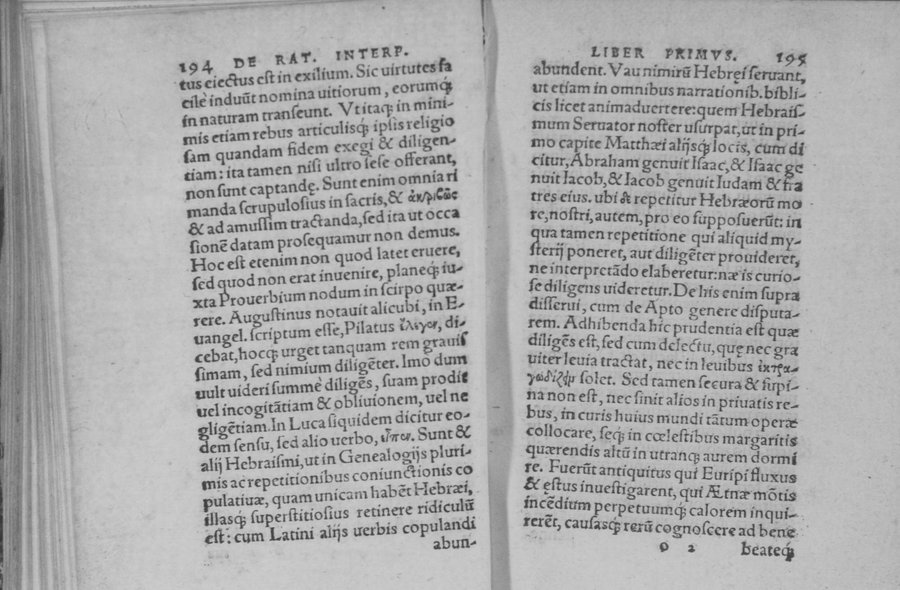 194 DE RAT. INTERP.
tus eiectus est in exilium. Sic virtutes fa
cilè induũt nomina uitiorum, eorumq́;
in naturam transeunt. Vt itaq; in mini-
mis etiam rebus articulisq́; ipsis religio
sam quandam fidem exegi & diligen-
tiam: ita tamen nisi ultro sese offerant,
non sunt captandę. Sunt enim omnia ri
manda scrupulosius in sacris, & ἀκριβῶς
& ad amussim tractanda, sed ita ut occa
sionẽ datam prosequamur non demus.
Hoc est etenim non quod latet eruere,
sed quod non erat inuenire, planeq́; iu-
xta Prouerbium nodum in scirpo quæ-
rere. Augustinus notauit alicubi, in E-
uangel. scriptum esse, Pilatus ἔλεγον, di-
cebat, hocq́; urget tanquam rem grauis
simam, sed nimium diligẽter. Imo dum
uult uideri summè diligẽs, suam prodit
uel incogitãtiam & obliuionem, uel ne
gligẽtiam. In Luca siquidem dicitur eo-
dem sensu, sed alio uerbo, εἶπον. Sunt &
alij Hebraismi, ut in Genealogijs pluri-
mis ac repetitionibus coniunctionis co
pulatiuæ, quam unicam habẽt Hebræi,
illasq́; superstitiosius retinere ridiculũ
est: cum Latini alijs uerbis copulandi
abun-
LIBER PRIMVS. 195
abundent. Vau nimirũ Hebręi seruant,
ut etiam in omnibus narrationib. bibli-
cis licet animaduertere: quem Hebrais-
mum Seruator noster usurpat, ut in pri-
mo capite Matthæi alijsq́; locis, cum di
citur, Abraham genuit Isaac, & Isaac ge
nuit Iacob, & Iacob genuit Iudam & fra
tres eius. ubi & repetitur Hebræorũ mo
re, nostri, autem, pro eo supposuerũt: in
qua tamen repetitione qui aliquid my-
sterij poneret, aut diligẽter prouideret,
ne interpretãdo elaberetur: næ is curio-
se diligens uideretur. De his enim supra
disserui, cum de Apto genere disputa-
rem. Adhibenda hic prudentia est quæ
diligẽs est, sed cum delectu, quę nec gra
uiter leuia tractat, nec in leuibus ἐκτρα-
γωδίζειν solet. Sed tamen secura & supi-
na non est, nec sinit alios in priuatis re-
bus, in curis huius mundi tãtum operæ
collocare, seq́; in cœlestibus margaritis
quærendis altũ in utranq; aurem dormi
re. Fuerũt antiquitus qui Euripi fluxus
& ęstus inuestigarent, qui Ætnæ mõtis
incẽdium perpetuumq́; calorem inqui-
rerẽt, causasq́; rerũ cognoscere ad bene
o 2 beateq́;